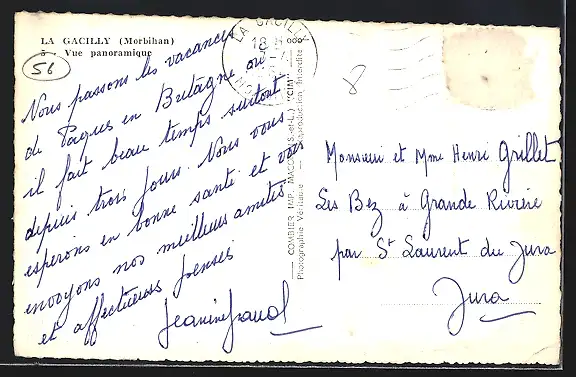 LA GACILLY (Morbihan)
5 - Vue panoramique
56
Nous passons les vacances
de Paques en Bretagne ou
il fait beau temps surtout
depuis trois jours. Nous vous
esperons en bonne santé et vous
envoyons nos meilleures amitiés
et affectueuses pensées
LA GACILLY
18
8
COMBIER IMP. MACON (S.-et-L.) "CIM"
Photographie Véritable - Reproduction interdite
Monsieur et Mme Henri Grillet
Les Bez à Grande Rivière
par St Laurent du Jura
Jura